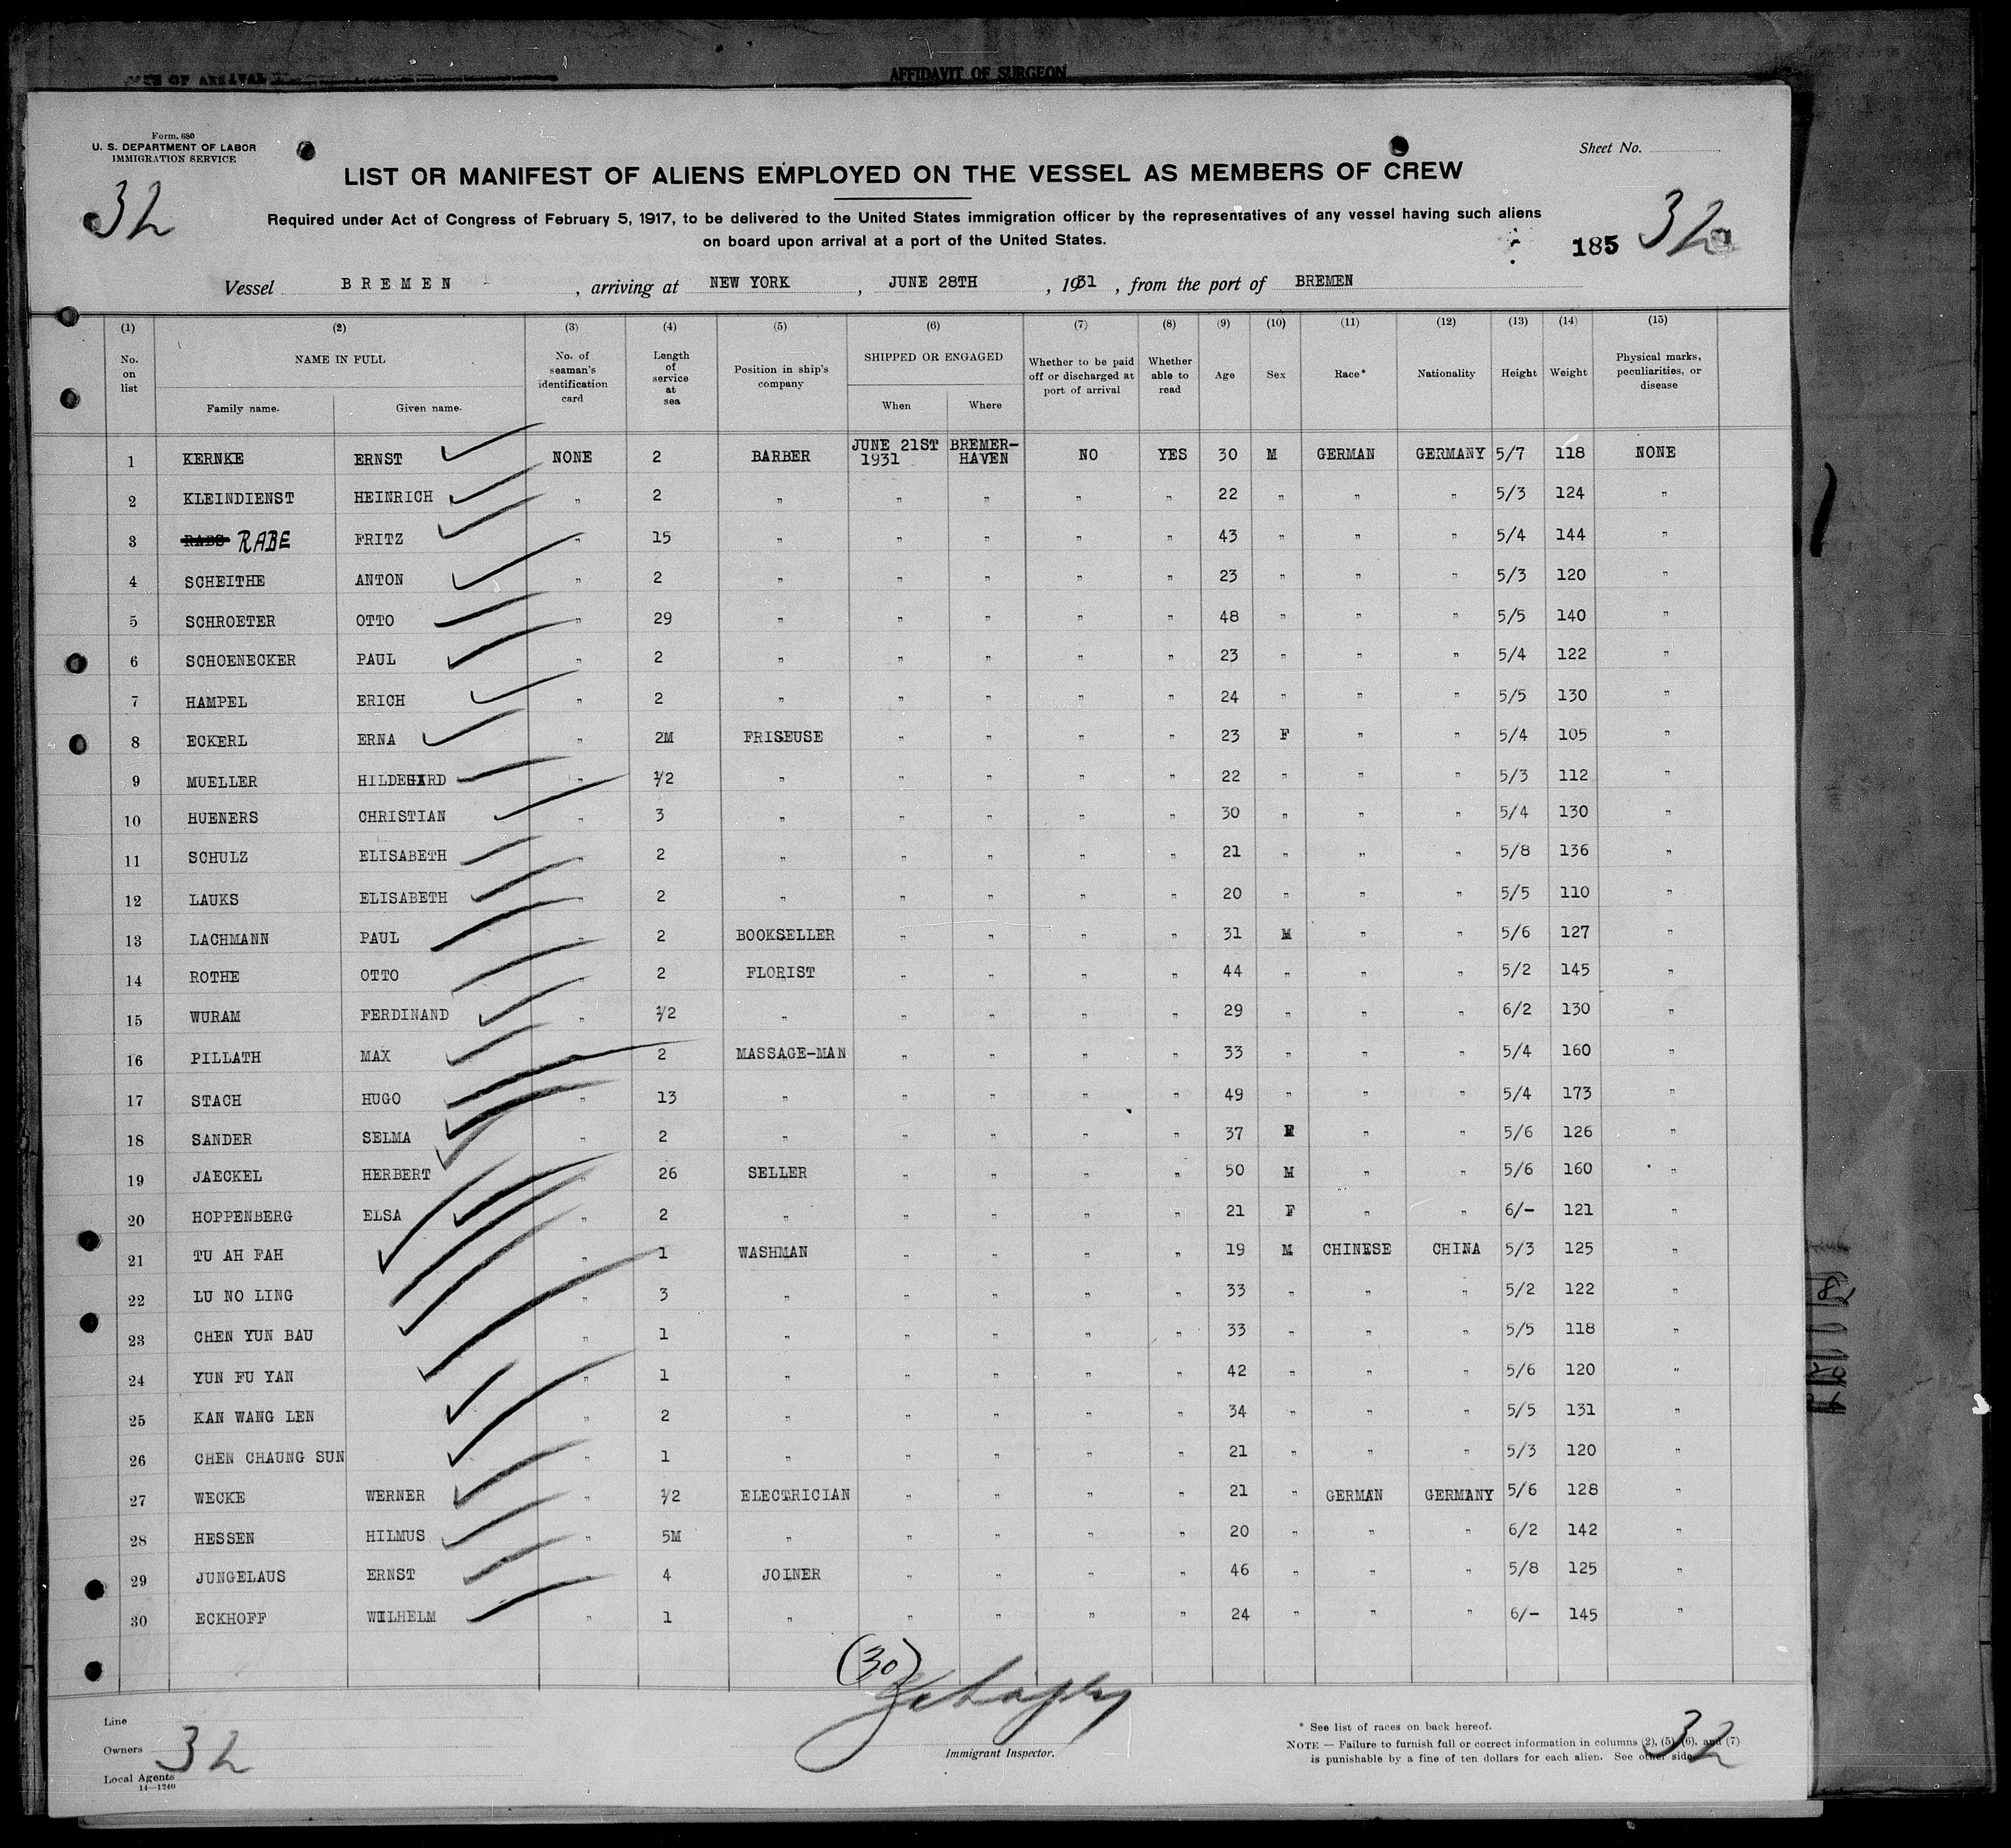 AFFIDAVIT OF SURGEON
Form 680
U. S. DEPARTMENT OF LABOR
IMMIGRATION SERVICE
Sheet No.
LIST OR MANIFEST OF ALIENS EMPLOYED ON THE VESSEL AS MEMBERS OF CREW
32
Required under Act of Congress of February 5, 1917, to be delivered to the United States immigration officer by the representatives of any vessel having such aliens
on board upon arrival at a port of the United States.
185 32
Vessel BREMEN, arriving at NEW YORK, JUNE 28TH, 1931, from the port of BREMEN
(1) (2) (3) (4) (5) (6) (7) (8) (9) (10) (11) (12) (13) (14) (15)
No. on list NAME IN FULL Family name. Given name. No. of seaman's identification card Length of service at sea Position in ship's company SHIPPED OR ENGAGED When Where Whether to be paid off or discharged at port of arrival Whether able to read Age Sex Race* Nationality Height Weight Physical marks, peculiarities, or disease
1 KERNKE ERNST NONE 2 BARBER JUNE 21ST 1931 BREMER-HAVEN NO YES 30 M GERMAN GERMANY 5/7 118 NONE
2 KLEINDIENST HEINRICH " 2 " " " " " 22 " " " 5/3 124 "
3 RABE FRITZ " 15 " " " " " 43 " " " 5/4 144 "
4 SCHEITHE ANTON " 2 " " " " " 23 " " " 5/3 120 "
5 SCHROETER OTTO " 29 " " " " " 48 " " " 5/5 140 "
6 SCHOENECKER PAUL " 2 " " " " " 23 " " " 5/4 122 "
7 HAMPEL ERICH " 2 " " " " " 24 " " " 5/5 130 "
8 ECKERL ERNA " 2M FRISEUSE " " " " 23 F " " 5/4 105 "
9 MUELLER HILDEGARD " 1/2 " " " " " 22 " " " 5/3 112 "
10 HUENERS CHRISTIAN " 3 " " " " " 30 " " " 5/4 130 "
11 SCHULZ ELISABETH " 2 " " " " " 21 " " " 5/8 136 "
12 LAUKS ELISABETH " 2 " " " " " 20 " " " 5/5 110 "
13 LACHMANN PAUL " 2 BOOKSELLER " " " " 31 M " " 5/6 127 "
14 ROTHE OTTO " 2 FLORIST " " " " 44 " " " 5/2 145 "
15 WURAM FERDINAND " 1/2 " " " " " 29 " " " 6/2 130 "
16 PILLATH MAX " 2 MASSAGE-MAN " " " " 33 " " " 5/4 160 "
17 STACH HUGO " 13 " " " " " 49 " " " 5/4 173 "
18 SANDER SELMA " 2 " " " " " 37 F " " 5/6 126 "
19 JAECKEL HERBERT " 26 SELLER " " " " 50 M " " 5/6 160 "
20 HOPPENBERG ELSA " 2 " " " " " 21 F " " 6/- 121 "
21 TU AH FAH " 1 WASHMAN " " " " 19 M CHINESE CHINA 5/3 125 "
22 LU NO LING " 3 " " " " " 33 " " " 5/2 122 "
23 CHEN YUN BAU " 1 " " " " " 33 " " " 5/5 118 "
24 YUN FU YAN " 1 " " " " " 42 " " " 5/6 120 "
25 KAN WANG LEN " 2 " " " " " 34 " " " 5/5 131 "
26 CHEN CHAUNG SUN " 1 " " " " " 21 " " " 5/3 120 "
27 WECKE WERNER " 1/2 ELECTRICIAN " " " " 21 " GERMAN GERMANY 5/6 128 "
28 HESSEN HILMUS " 5M " " " " " 20 " " " 6/2 142 "
29 JUNGELAUS ERNST " 4 JOINER " " " " 46 " " " 5/8 125 "
30 ECKHOFF WILHELM " 1 " " " " " 24 " " " 6/- 145 "
(30)
Line
Owners
32
Local Agents
14—1240
Immigrant Inspector.
* See list of races on back hereof.
NOTE — Failure to furnish full or correct information in columns (2), (5), (6), and (7)
is punishable by a fine of ten dollars for each alien. See other side.
32